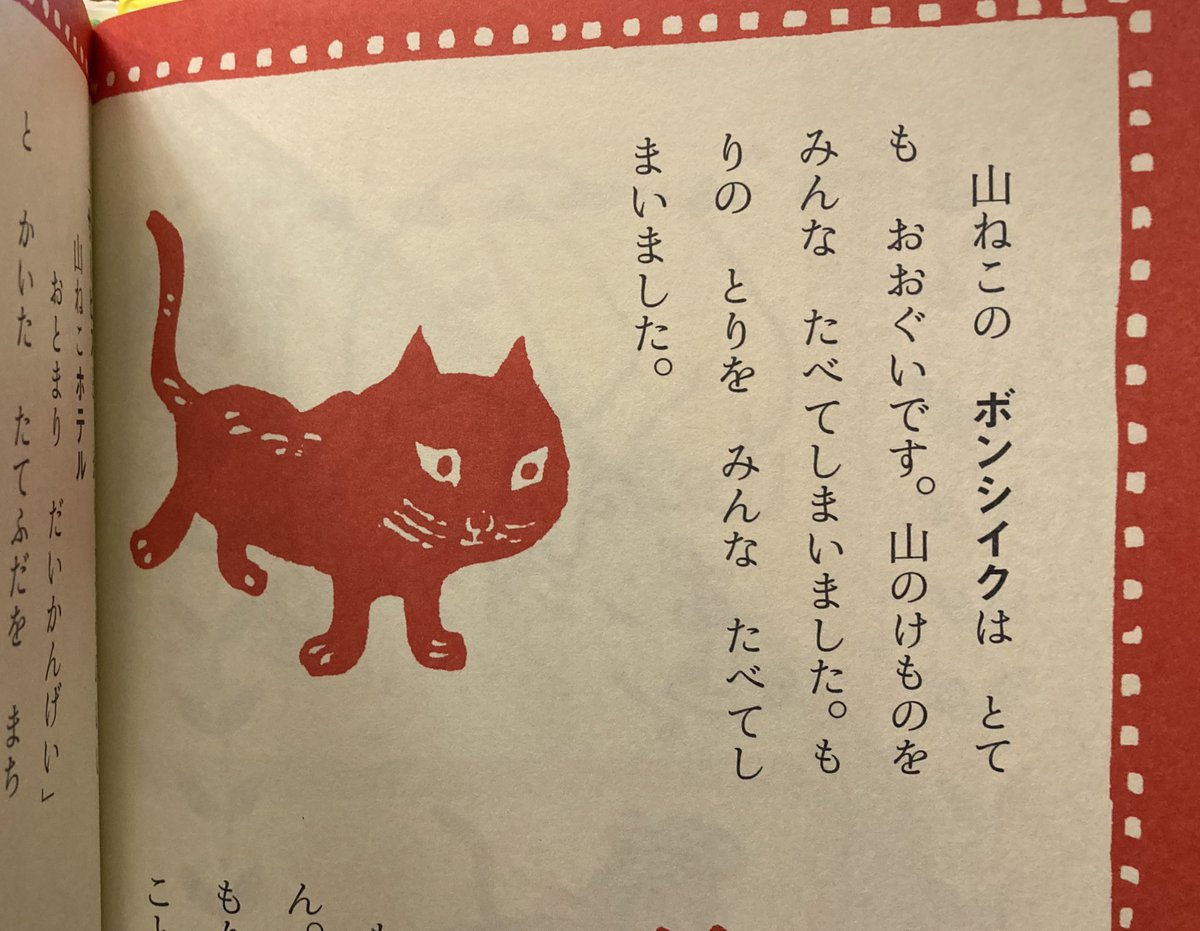 山ねこの ボンシイクは とて
も おおぐいです。山のけものを
みんな たべてしまいました。も
りの とりを みんな たべてし
まいました。
ん。
こ
山ねこホテル
おとまり だいかんげい」
と かいた たてふだを まち